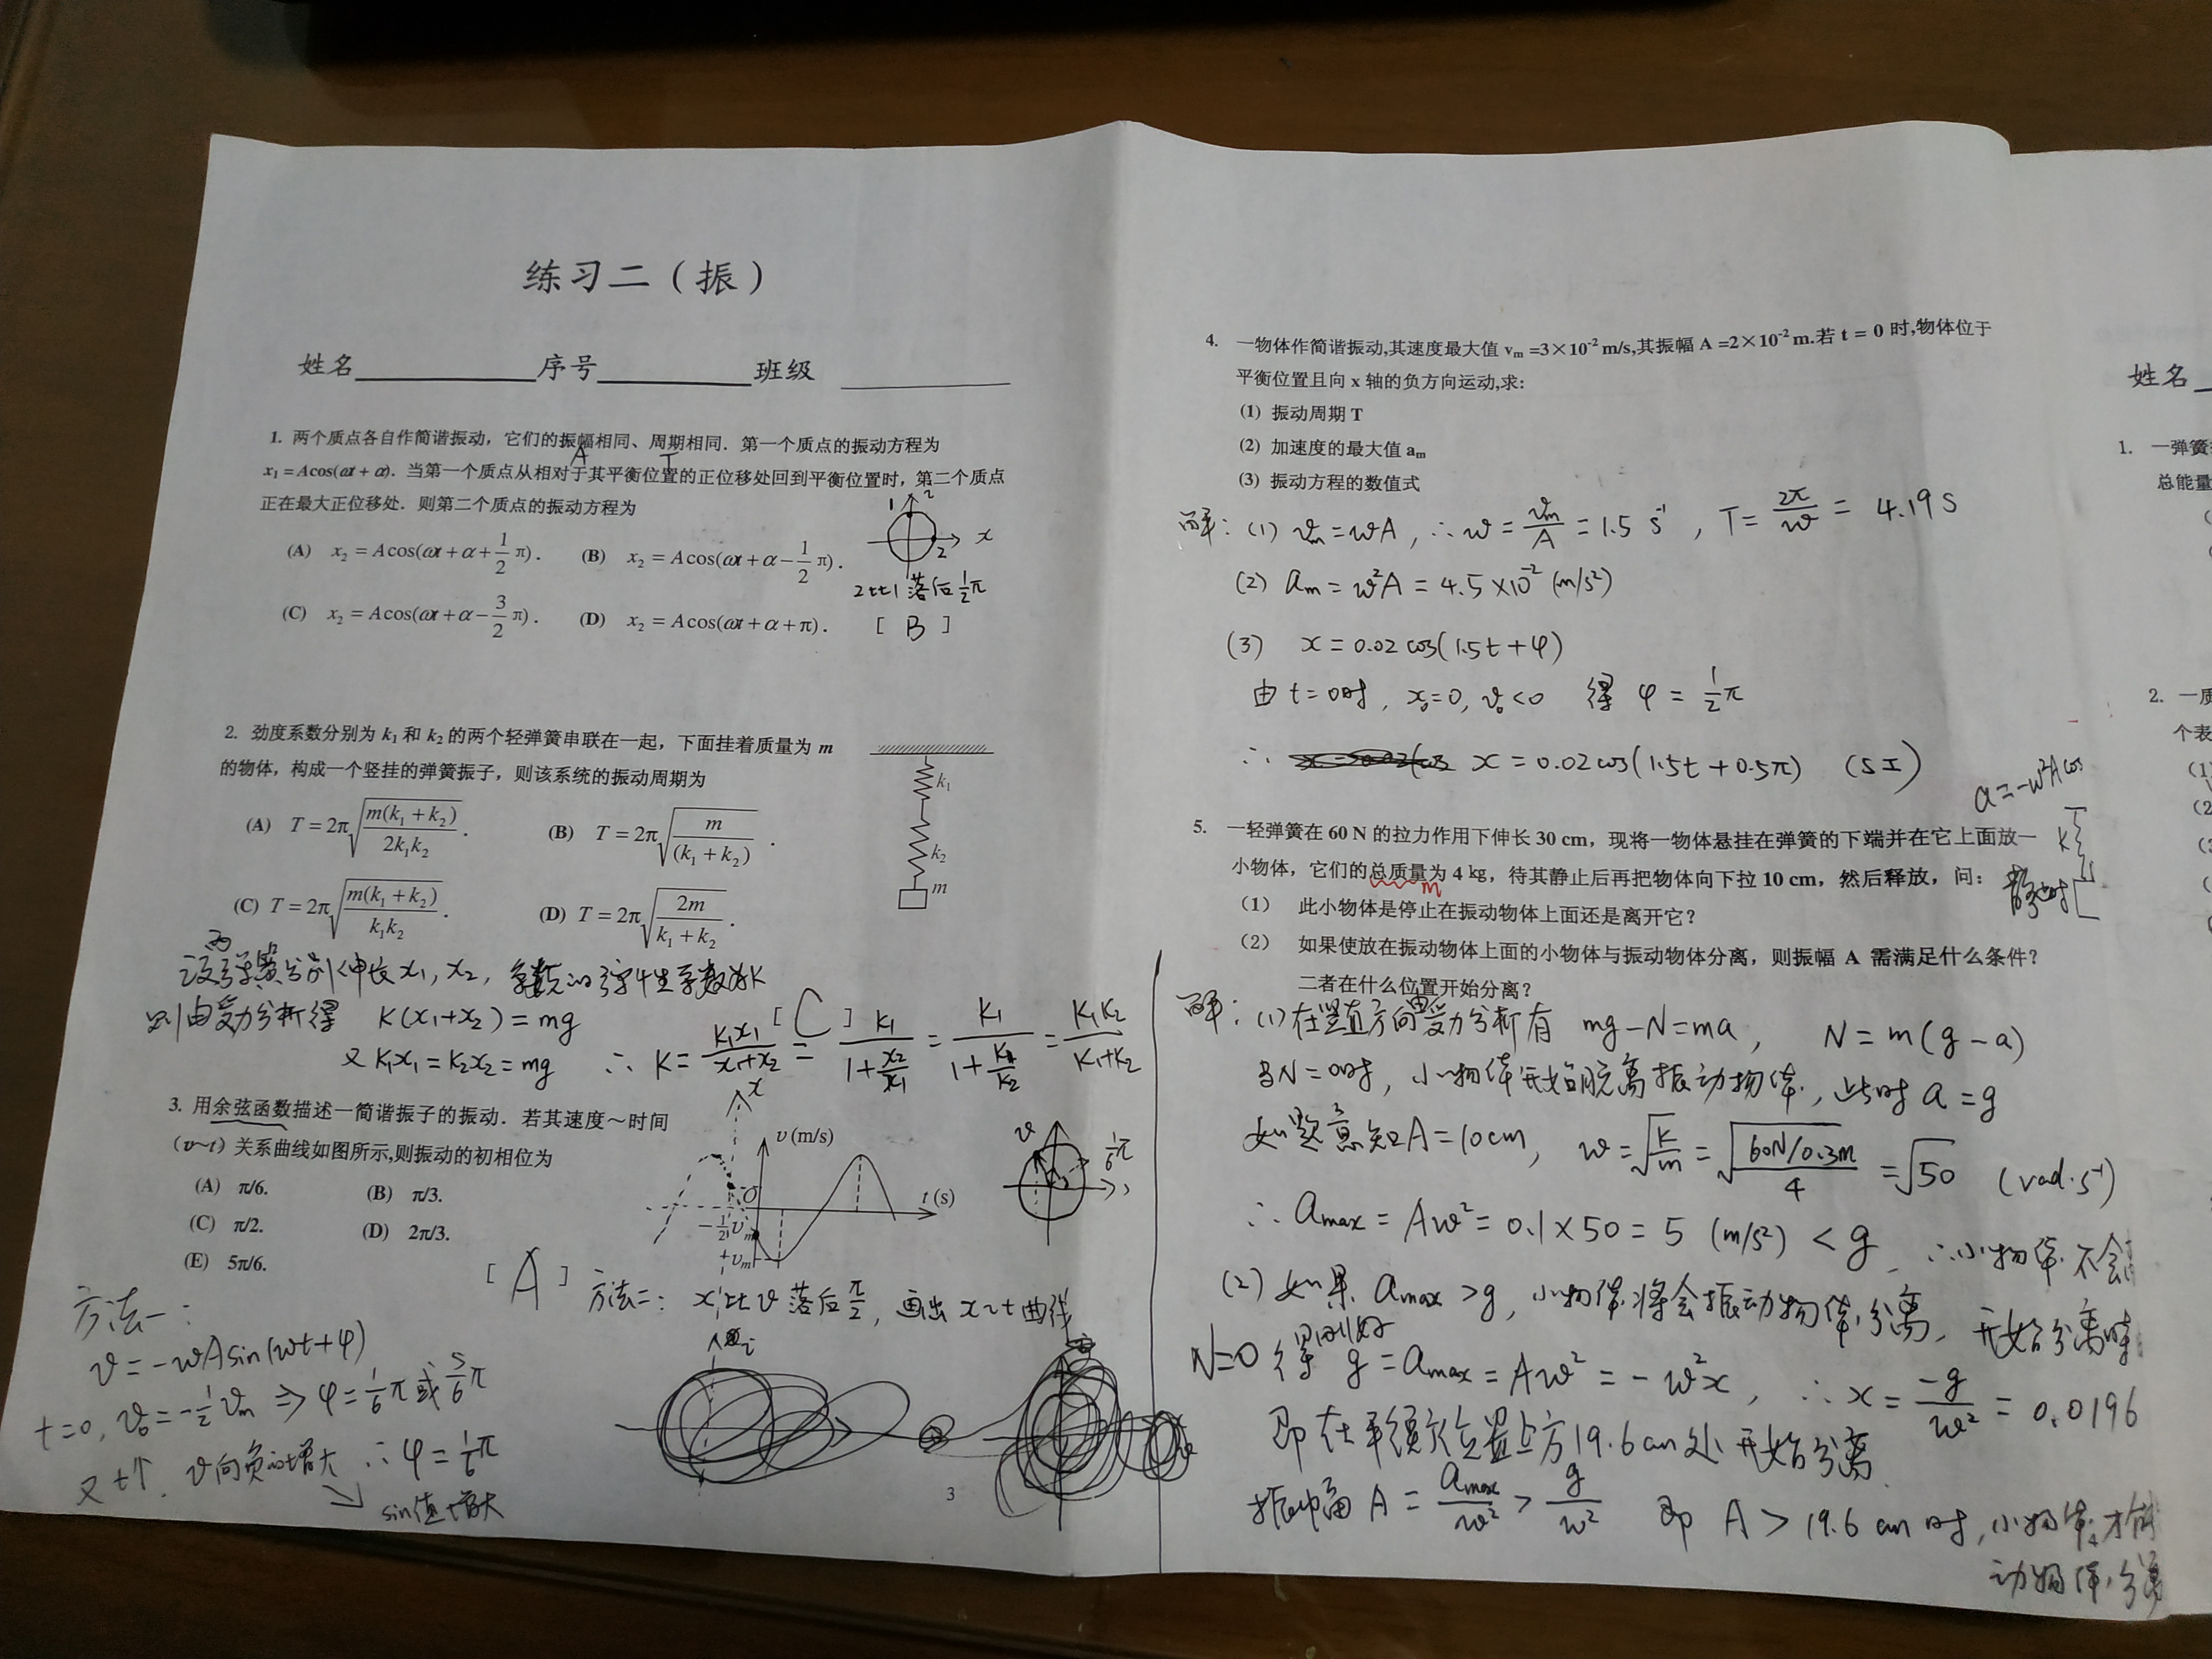 练习二（振）
姓名 序号 班级
1. 两个质点各自作简谐振动，它们的振幅相同、周期相同. 第一个质点的振动方程为
A T
x₁ = Acos(ωt + α). 当第一个质点从相对于其平衡位置的正位移处回到平衡位置时，第二个质点
正在最大正位移处. 则第二个质点的振动方程为
(A) x₂ = Acos(ωt + α + 1/2 π). (B) x₂ = Acos(ωt + α − 1/2 π).
(C) x₂ = Acos(ωt + α − 3/2 π). (D) x₂ = Acos(ωt + α + π).
1 2 x
2比1落后½π
[ B ]
2. 劲度系数分别为 k₁ 和 k₂ 的两个轻弹簧串联在一起，下面挂着质量为 m
的物体，构成一个竖挂的弹簧振子，则该系统的振动周期为
(A) T = 2π√(m(k₁ + k₂)/2k₁k₂) . (B) T = 2π√(m/(k₁ + k₂)) .
(C) T = 2π√(m(k₁ + k₂)/k₁k₂) . (D) T = 2π√(2m/(k₁ + k₂)) .
k₁
k₂
m
[ C ]
设两弹簧分别伸长 x₁, x₂, 等效的弹性系数为K
则由受力分析得 K(x₁+x₂) = mg
又 k₁x₁ = k₂x₂ = mg ∴ K = k₁x₁/(x₁+x₂) = k₁/(1+x₂/x₁) = k₁/(1+k₁/k₂) = k₁k₂/(k₁+k₂)
3. 用余弦函数描述一简谐振子的振动．若其速度～时间
（v～t）关系曲线如图所示,则振动的初相位为
(A) π/6. (B) π/3.
(C) π/2. (D) 2π/3.
(E) 5π/6.
[ A ]
x
v (m/s)
O
t (s)
−½vₘ
vₘ
v
⅙π
方法一：
v = −ωA sin(ωt+φ)
t=0, v₀ = −½vₘ ⇒ φ = ⅙π 或 5/6 π
又 t↑, v向负的增大 ∴ φ = ⅙π
sin值增大
方法二：x比v落后π/2, 画出x~t曲线
3
4. 一物体作简谐振动,其速度最大值 vₘ =3×10⁻² m/s,其振幅 A =2×10⁻² m.若 t = 0 时,物体位于
平衡位置且向 x 轴的负方向运动,求:
(1) 振动周期 T
(2) 加速度的最大值 aₘ
(3) 振动方程的数值式
解：(1) vₘ = ωA, ∴ ω = vₘ/A = 1.5 s⁻¹, T = 2π/ω = 4.19 s
(2) aₘ = ω²A = 4.5×10⁻² (m/s²)
(3) x = 0.02 cos(1.5t + φ)
由 t=0时, x₀=0, v₀<0 得 φ = ½π
∴ x = 0.02 cos(1.5t + 0.5π) (SI)
a = −ω²A cos
5. 一轻弹簧在 60 N 的拉力作用下伸长 30 cm，现将一物体悬挂在弹簧的下端并在它上面放一
小物体，它们的总质量为 4 kg，待其静止后再把物体向下拉 10 cm，然后释放，问：
m
(1) 此小物体是停止在振动物体上面还是离开它？
(2) 如果使放在振动物体上面的小物体与振动物体分离，则振幅 A 需满足什么条件？
二者在什么位置开始分离？
k
解：(1) 在竖直方向受力分析有 mg−N=ma, N=m(g−a)
当N=0时, 小物体开始脱离振动物体, 此时 a=g
如题意知A=10cm, ω = √(k/m) = √(60N/0.3m / 4) = √50 (rad·s⁻¹)
∴ aₘₐₓ = Aω² = 0.1×50 = 5 (m/s²) < g, ∴小物体不会
(2) 如果 aₘₐₓ > g, 小物体将会振动物体分离, 开始分离时
N=0 得 g = aₘₐₓ = Aω² = −ω²x, ∴ x = −g/ω² = 0.0196
即在平衡位置上方19.6cm处开始分离
振幅 A = aₘₐₓ/ω² > g/ω² 即 A > 19.6 cm时, 小物体才能
动物体分离
姓名
1. 一弹簧
总能量
2. 一质
个表